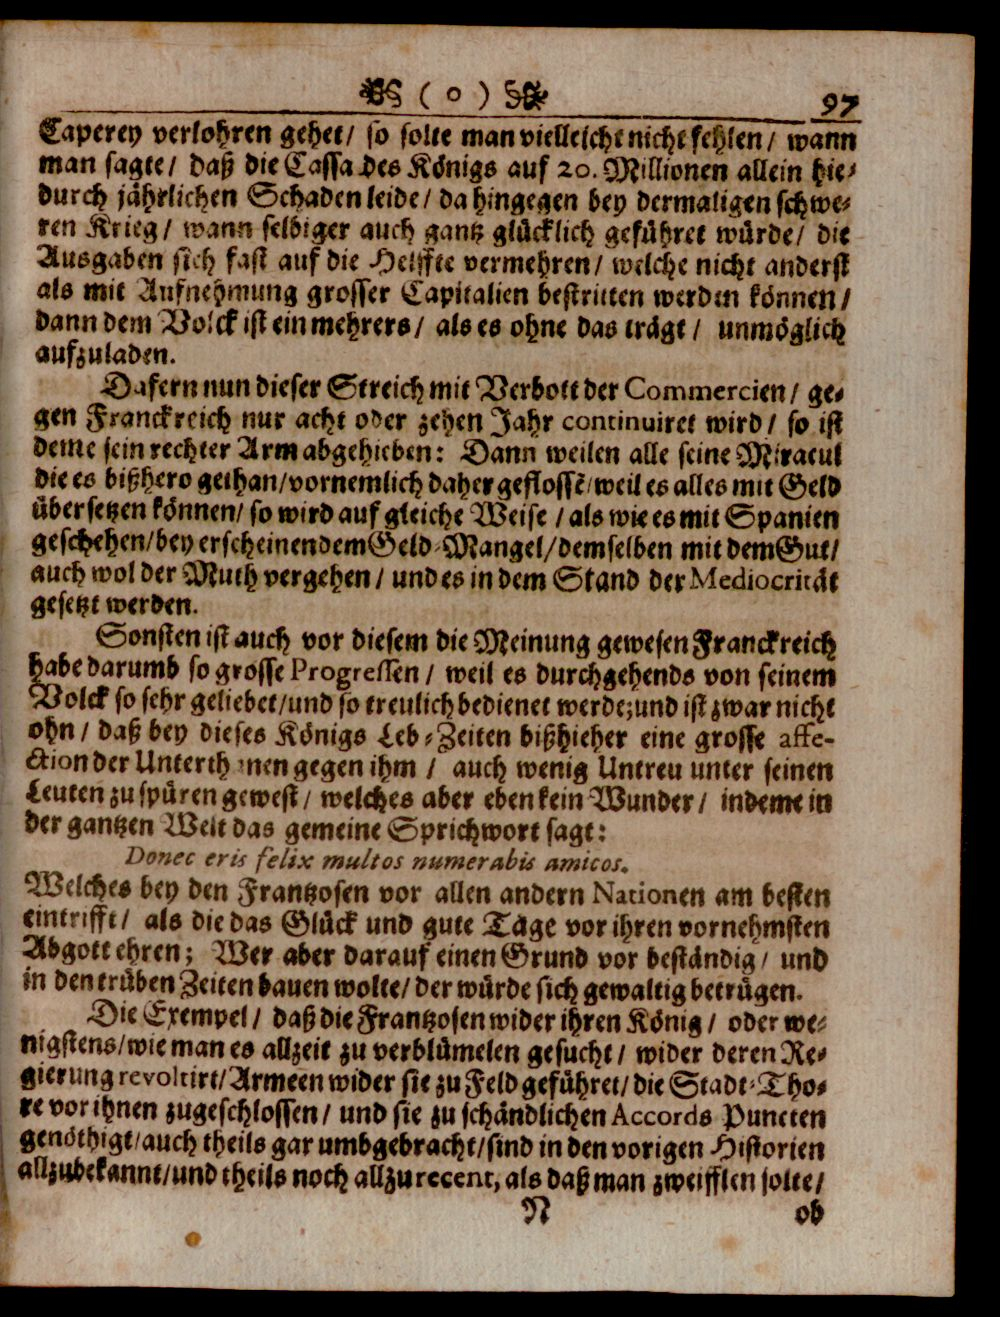 ( o ) 97
Caperey verlohren gehet/ so solte man vielleicht nicht fehlen/ wann
man sagte/ daß die Cassa des Königs auf 20. Millionen allein hie-
durch jährlichen Schaden leide/ da hingegen bey dermaligen schwe-
ren Krieg/ wann selbiger auch gantz glücklich geführet würde/ die
Ausgaben sich fast auf die Helffte vermehren/ welche nicht anderst
als mit Aufnehmung grosser Capitalien bestritten werden können/
dann dem Volck ist ein mehrers/ als es ohne das trägt/ unmöglich
aufzuladen.
Dafern nun dieser Streich mit Verbott der Commercien/ ge-
gen Franckreich nur acht oder zehen Jahr continuiret wird/ so ist
deme sein rechter Arm abgehieben: Dann weilen alle seine Miracul
die es bißhero gethan/vornemlich daher geflossẽ/weil es alles mit Geld
übersetzen können/ so wird auf gleiche Weise/ als wie es mit Spanien
geschehen/bey erscheinendem Geld-Mangel/demselben mit dem Gut/
auch wol der Muth vergehen/ und es in dem Stand der Mediocrität
gesetzt werden.
Sonsten ist auch vor diesem die Meinung gewesen Franckreich
habe darumb so grosse Progressen/ weil es durchgehends von seinem
Volck so sehr geliebet/und so treulich bedienet werde; und ist zwar nicht
ohn/ daß bey dieses Königs Leb-Zeiten bißhieher eine grosse affe-
ction der Unterthanen gegen ihm/ auch wenig Untreu unter seinen
Leuten zu spüren gewest/ welches aber eben kein Wunder/ indeme in
der gantzen Welt das gemeine Sprichwort sagt:
Donec eris felix multos numerabis amicos.
Welches bey den Frantzosen vor allen andern Nationen am besten
eintrifft/ als die das Glück und gute Täge vor ihren vornehmsten
Abgott ehren; Wer aber darauf einen Grund vor beständig/ und
in den trüben Zeiten bauen wolte/ der würde sich gewaltig betrügen.
Die Exempel/ daß die Frantzosen wider ihren König/ oder we-
nigstens/wie man es allzeit zu verblümelen gesucht/ wider deren Re-
gierung revoltirt/Armeen wider sie zu Feld geführet/ die Stadt-Tho-
re vor ihnen zugeschlossen/ und sie zu schändlichen Accords Puncten
genöthigt/auch theils gar umbgebracht/sind in den vorigen Historien
allzubekannt/und theils noch allzu recent, als daß man zweifflen solte/
N ob